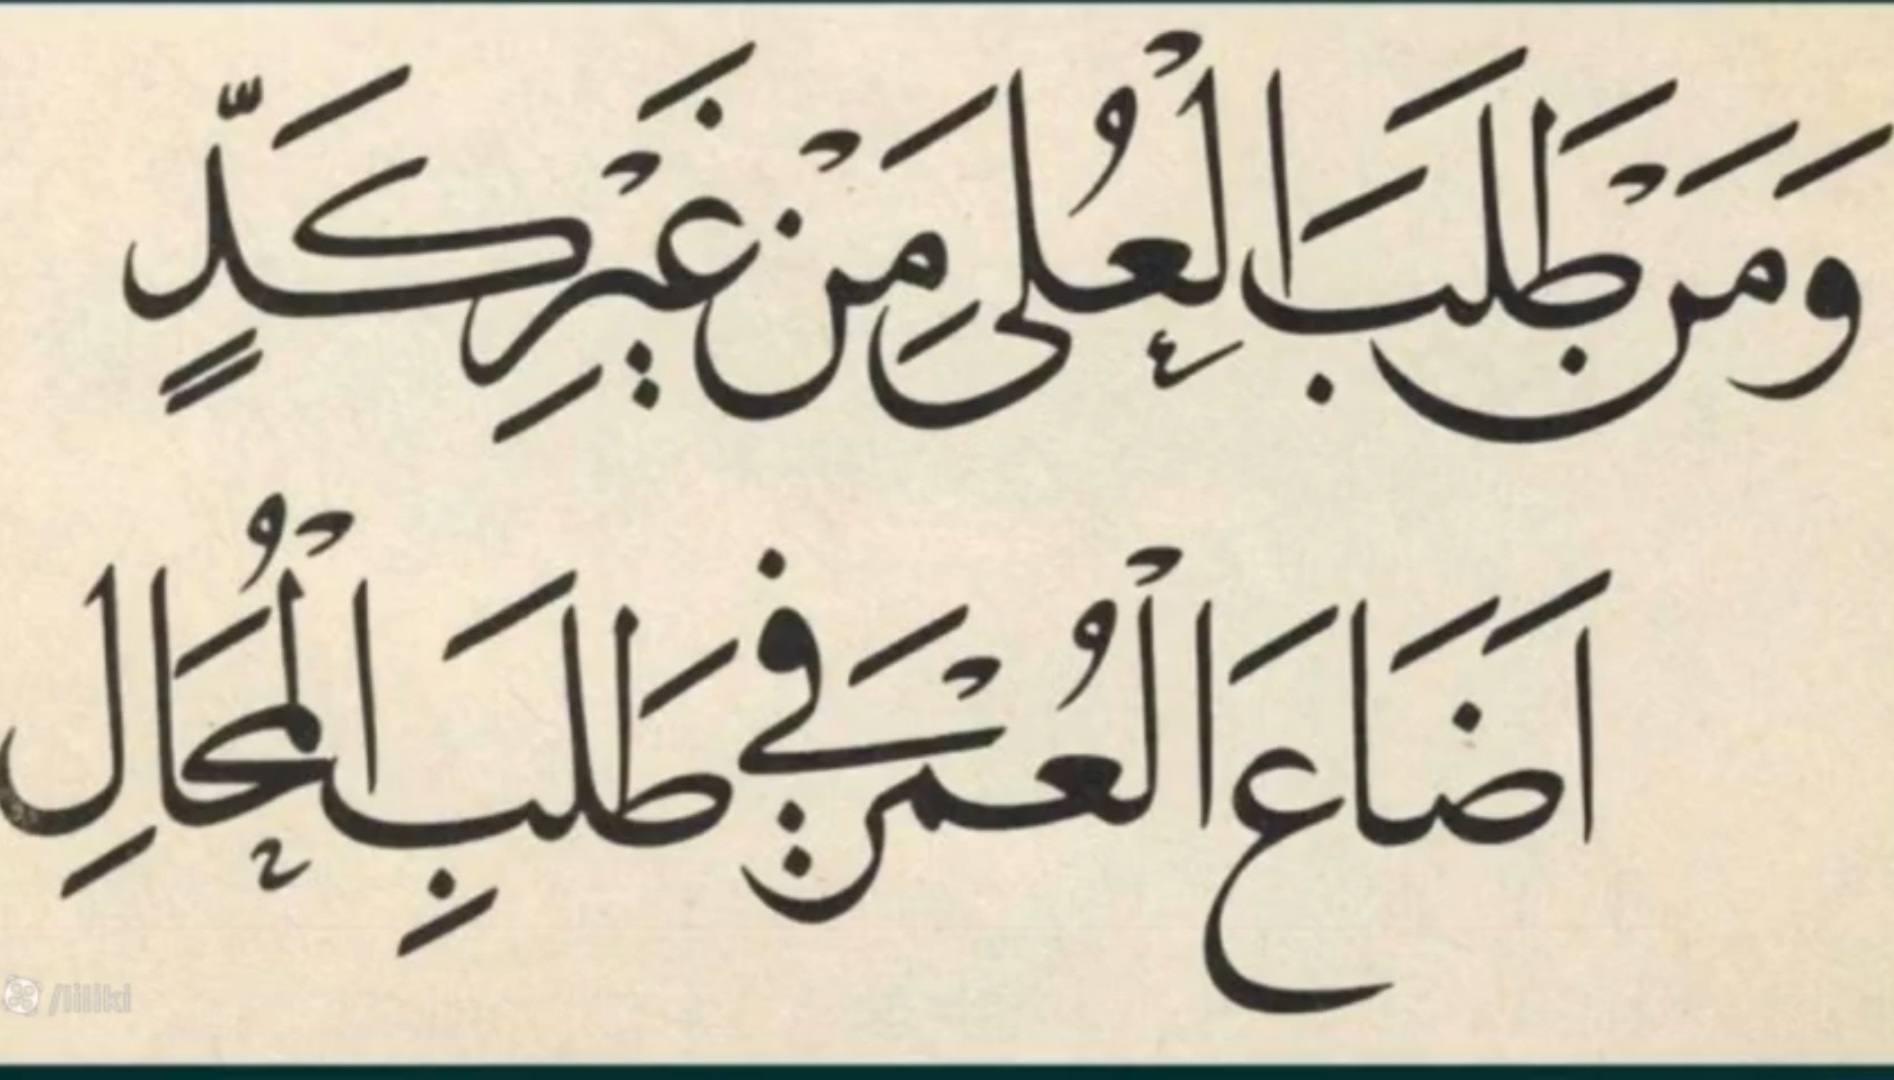 وَمَنْ طَلَبَ الْعُلَى مِنْ غَيْرِ كَدٍّ
اَضَاعَ الْعُمْرَ فِي طَلَبِ الْمُحَالِ
/liliki